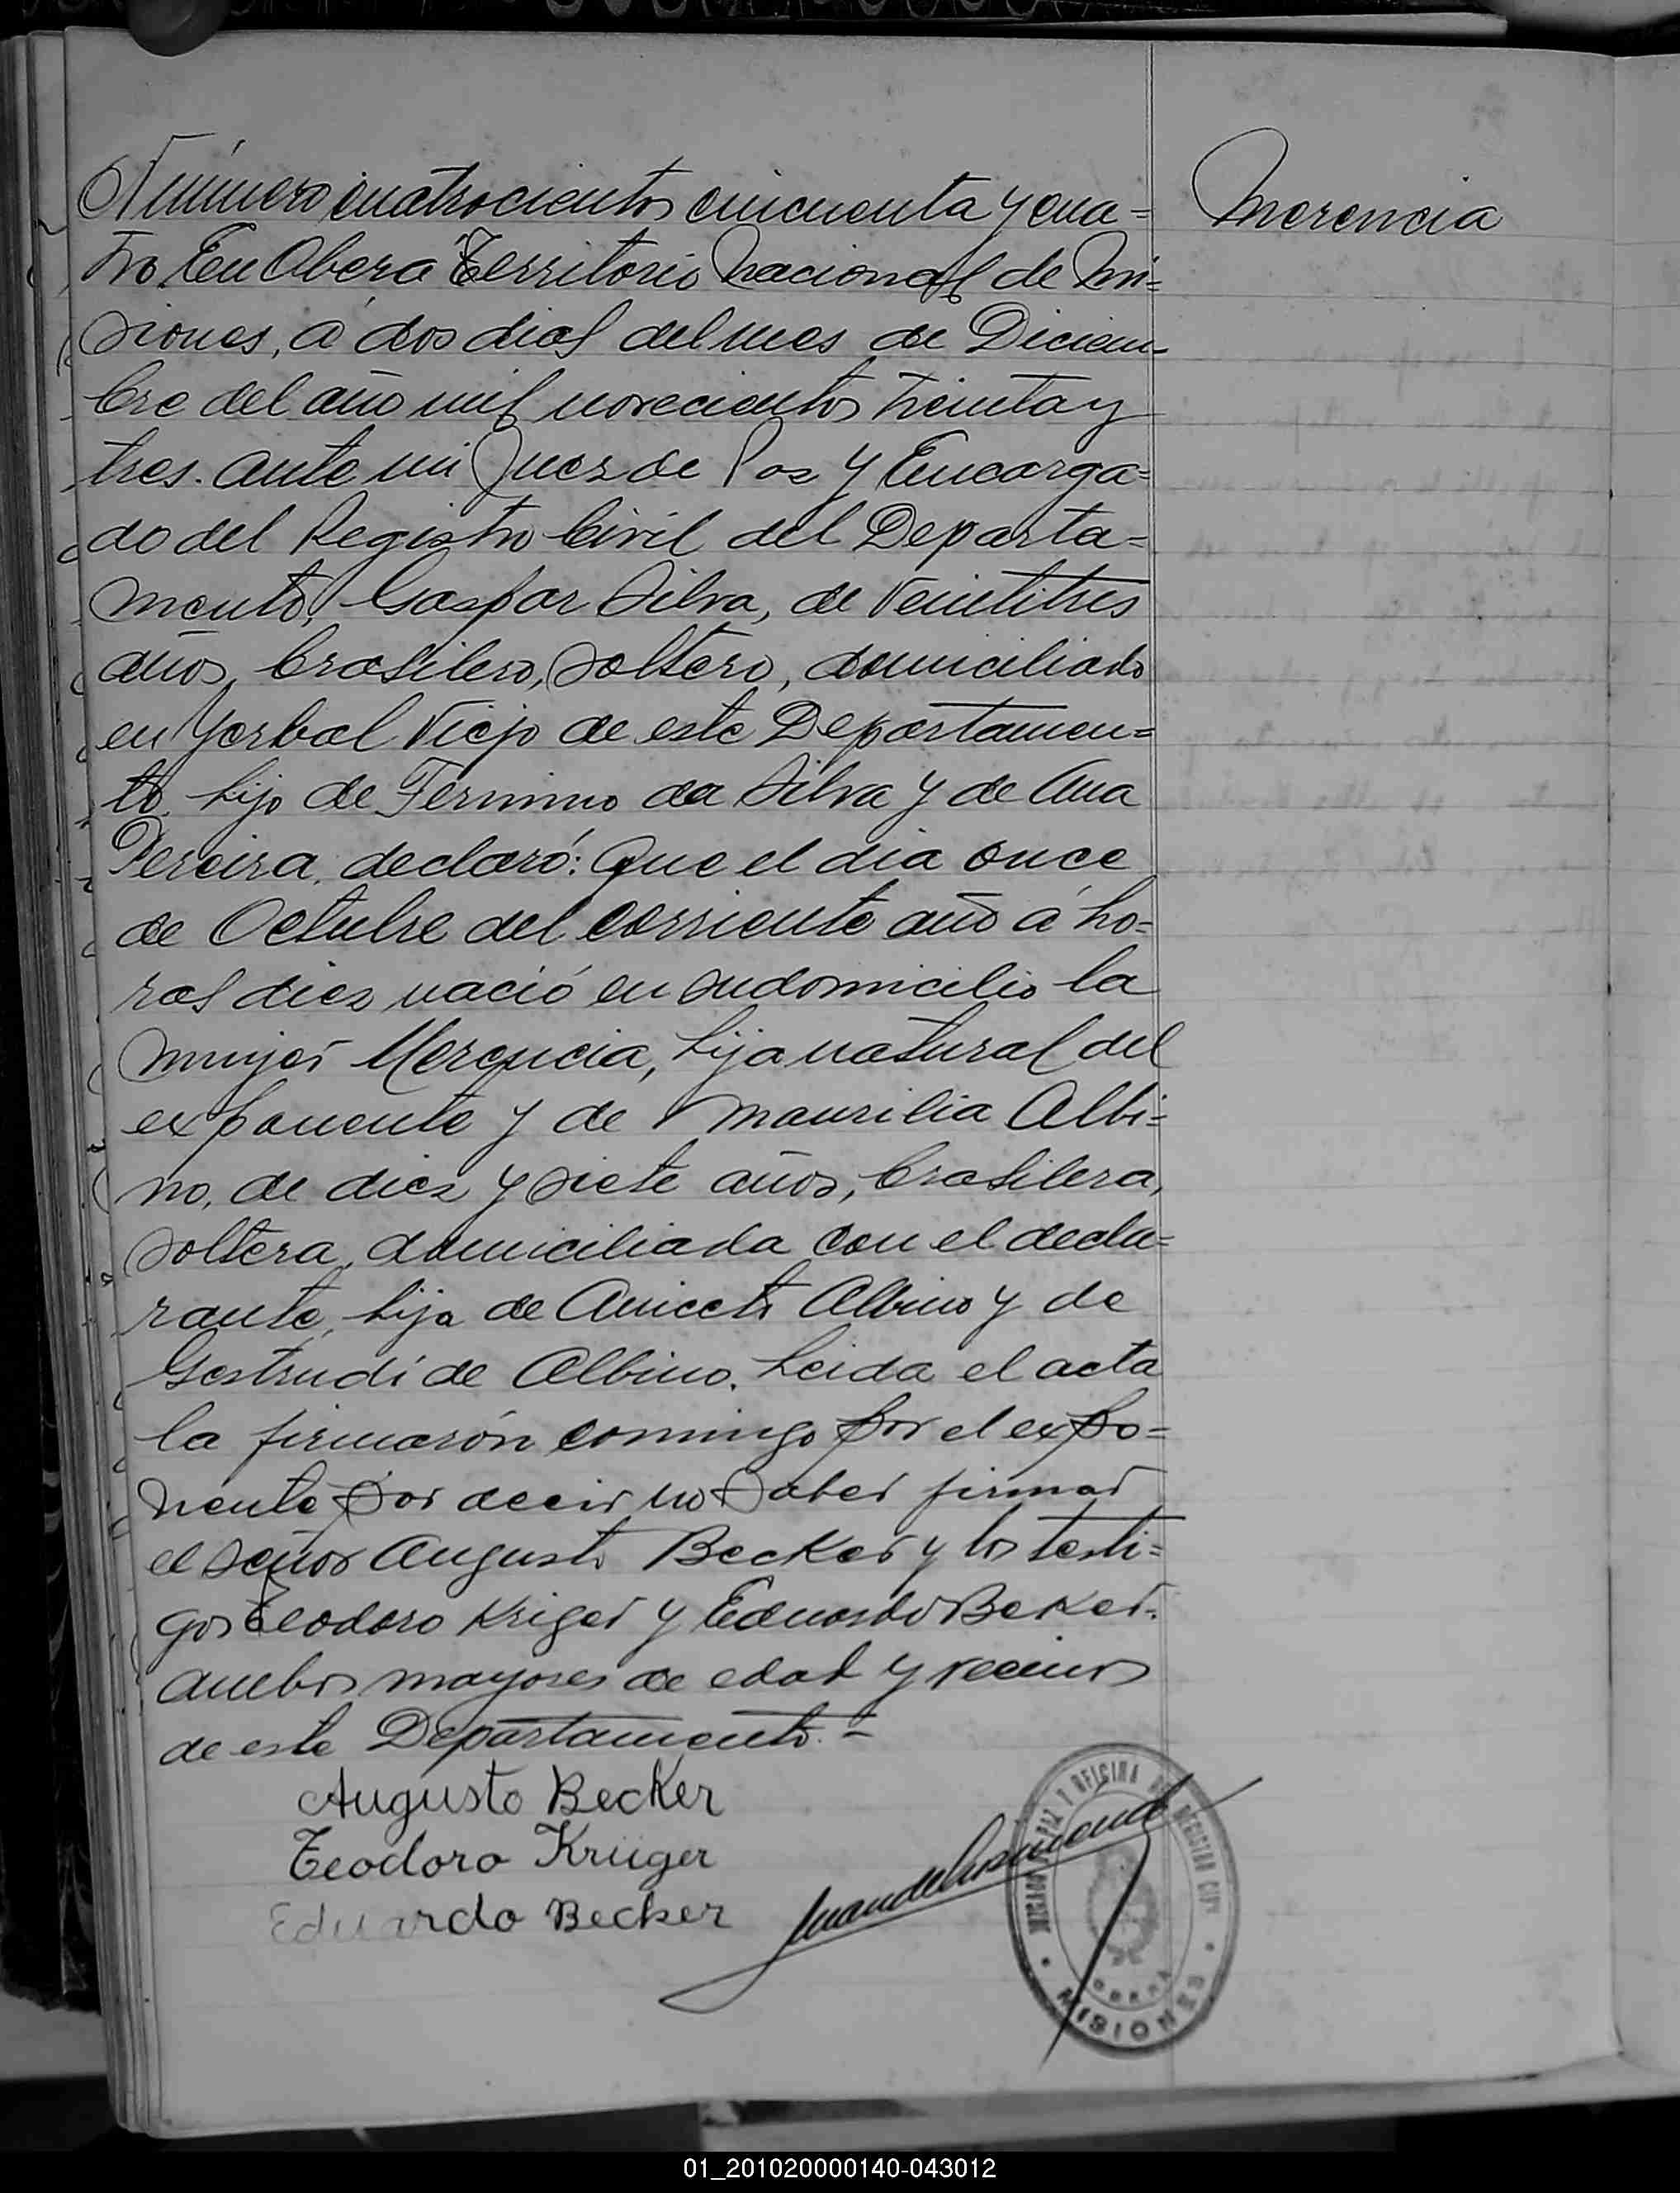 Número cuatrocientos cincuenta y cua=
tro. En Oberá Territorio Nacional de Mi=
siones, á dos dias del mes de Diciem=
bre del año mil novecientos treinta y
tres. ante mi Juez de Paz y Encarga=
do del Registro Civil del Departa=
mento, Gaspar Silva, de veintitres
años, brasilero, soltero, domiciliado
en Yerbal Viejo de este Departamen=
to, hijo de Fermino da Silva y de Ana
Pereira, declaró: Que el dia once
de Octubre del corriente año á ho=
ras diez nació en su domicilio la
mujer Merencia, hija natural del
exponente y de Maurilia Albi=
no, de diez y siete años, brasilera,
soltera, domiciliada con el decla=
rante, hija de Aniceto Albino y de
Gertrudi de Albino. Leida el acta
la firmarón conmigo por el expo=
nente por decir no saber firmar
el señor Augusto Becker y los testi=
gos Teodoro Kriger y Eduardo Beker.
ambos mayores de edad y vecinos
de este Departamento.=
Augusto Becker
Teodoro Krüger
Eduardo Becker
Merencia
PAZ Y OFICINA DE REGISTRO CIVIL
OBERA
MISIONES
01_201020000140-043012